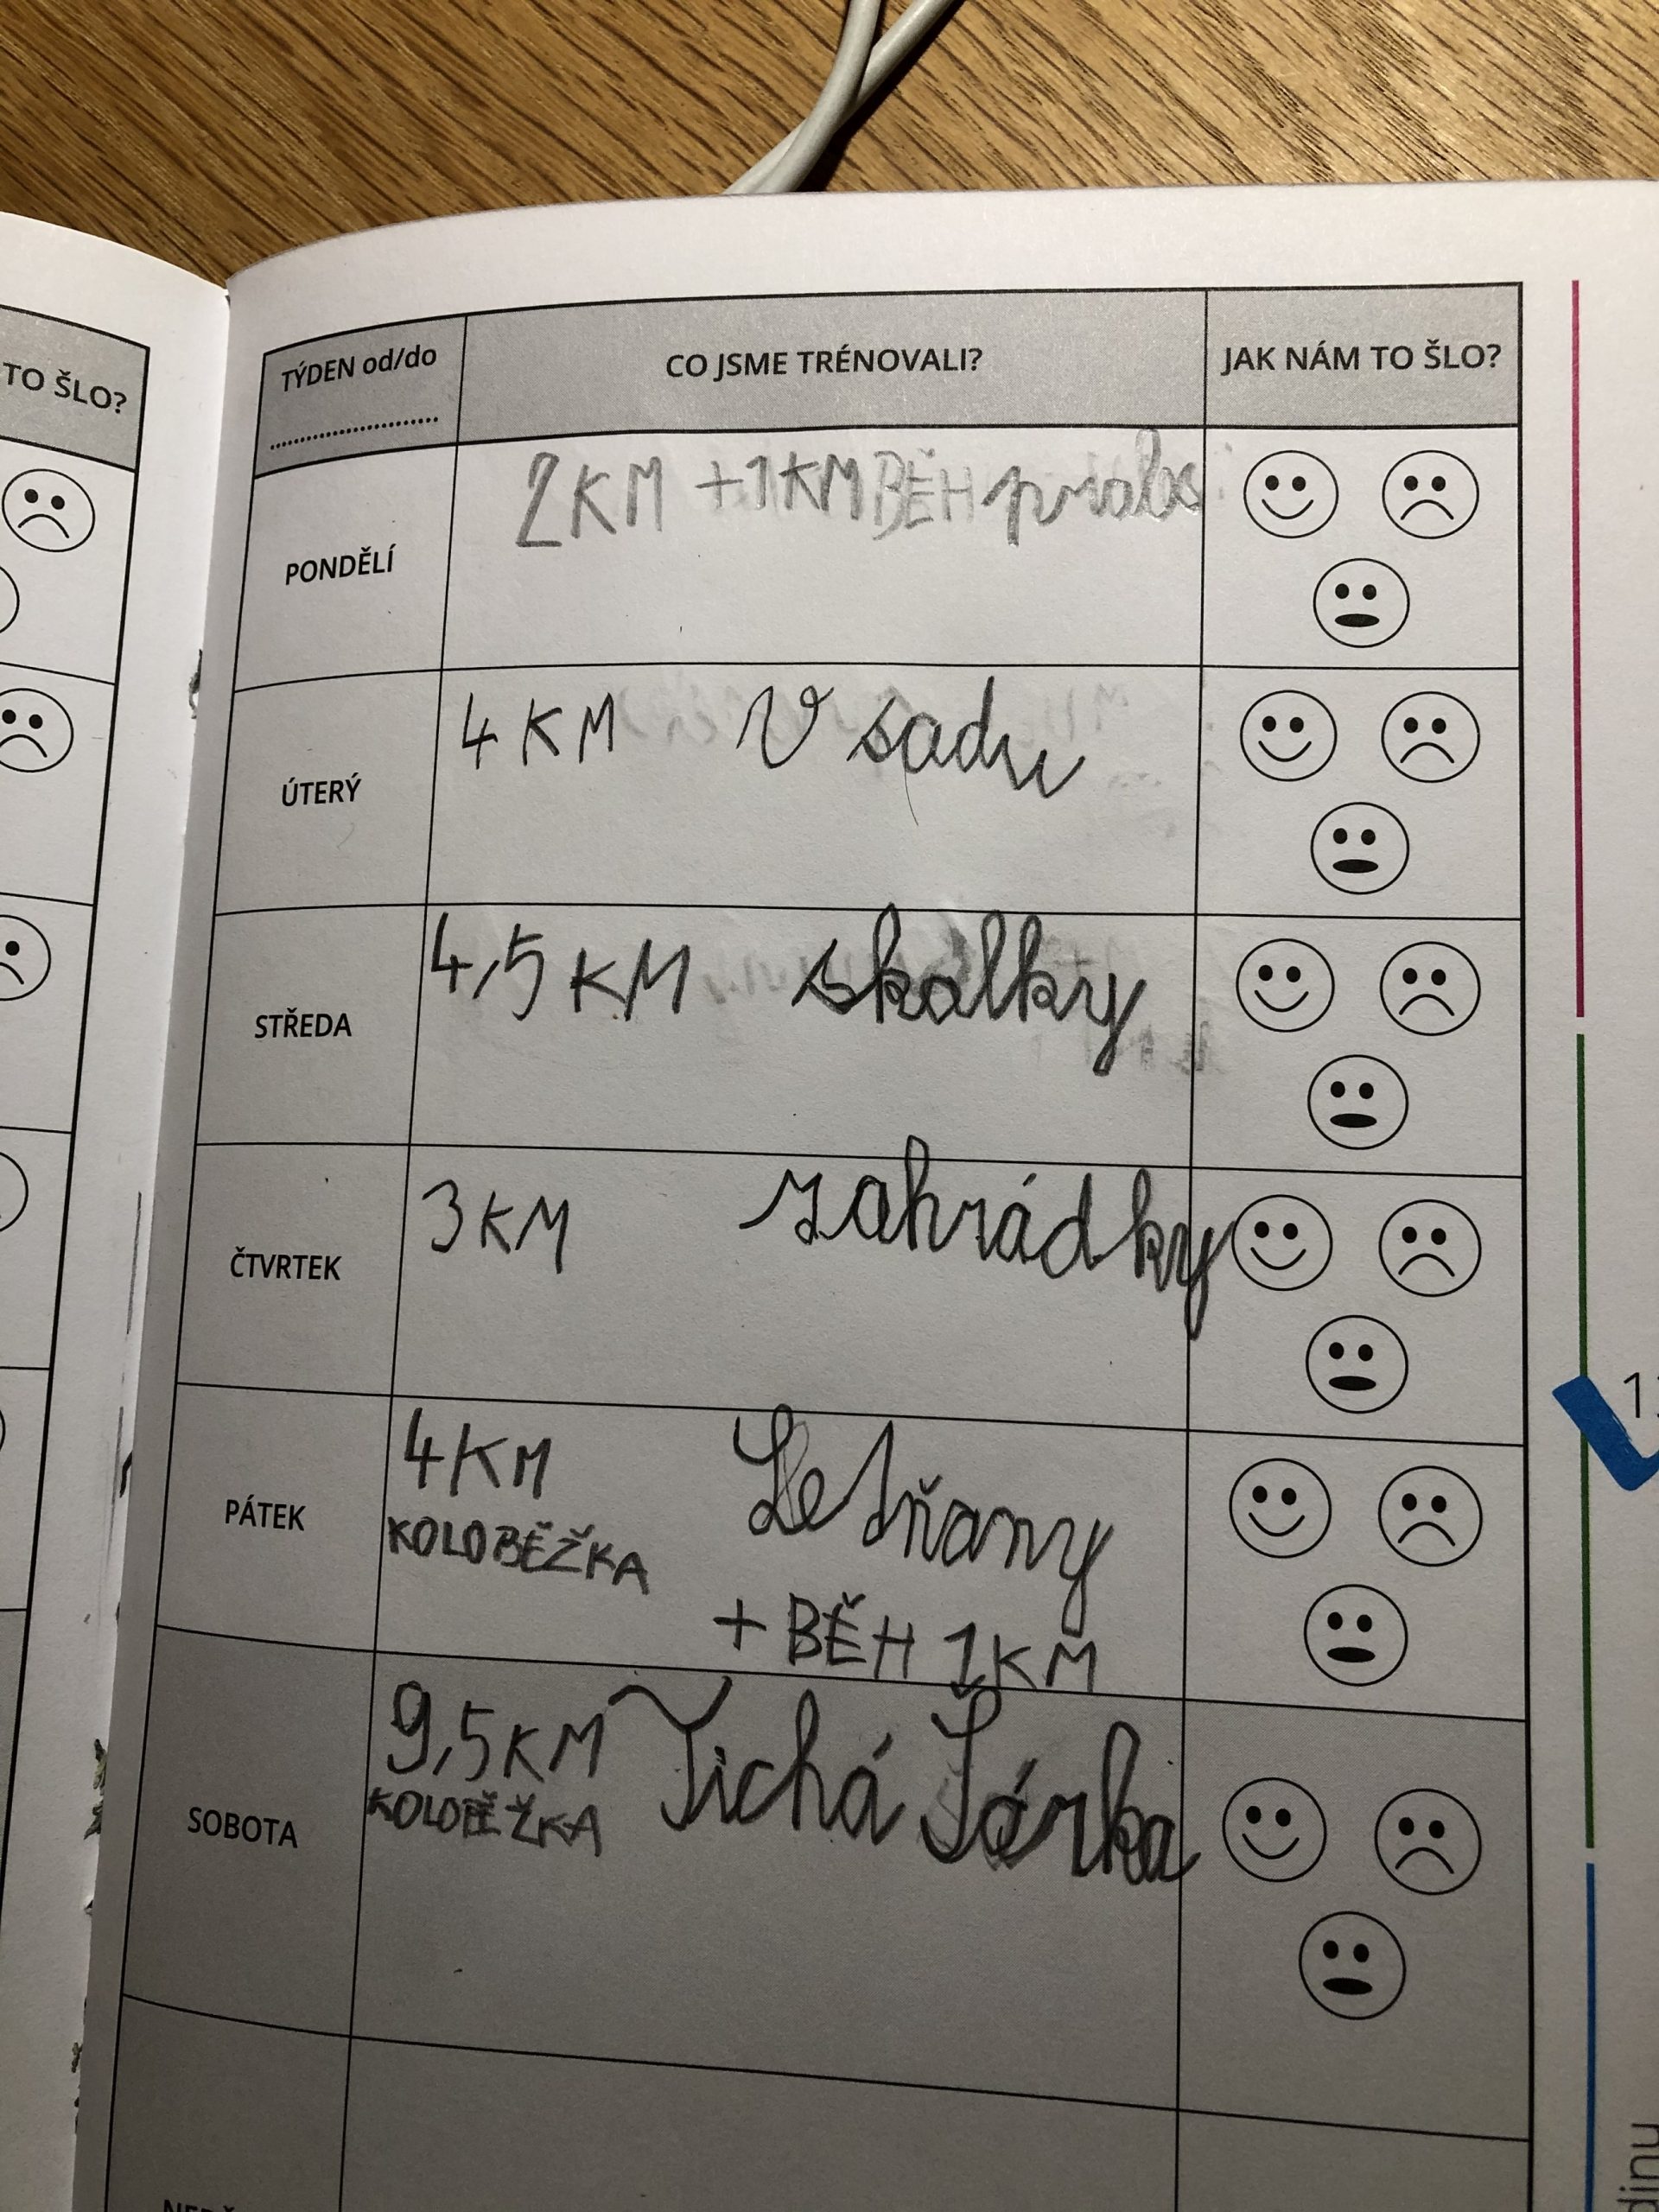 TO ŠLO?
TÝDEN od/do
........................
CO JSME TRÉNOVALI?
JAK NÁM TO ŠLO?
PONDĚLÍ
2 KM + 1 KM BĚH
ÚTERÝ
4 KM V sadu
STŘEDA
4,5 KM skalky
ČTVRTEK
3 KM zahrádky
PÁTEK
4 KM Letňany
KOLOBĚŽKA
+ BĚH 1 KM
SOBOTA
9,5 KM Tichá Šárka
KOLOBĚŽKA